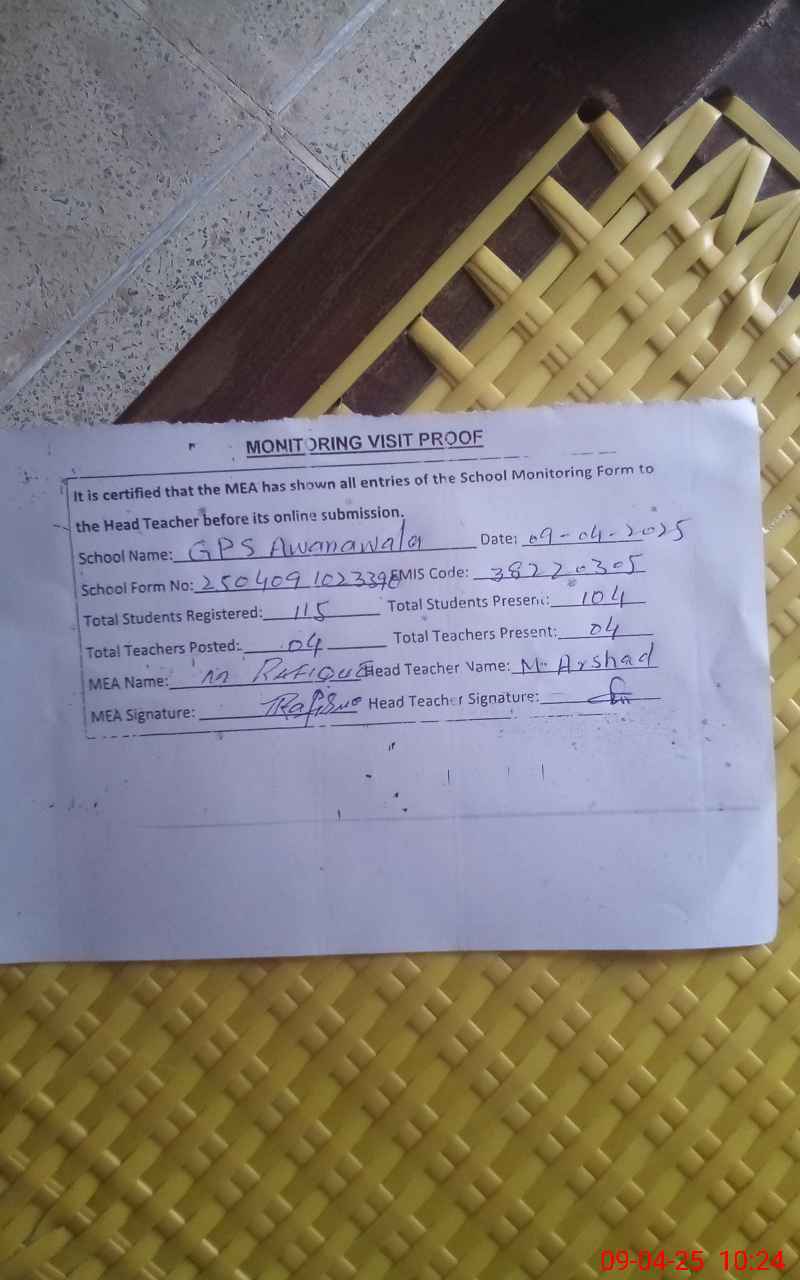 MONITORING VISIT PROOF
It is certified that the MEA has shown all entries of the School Monitoring Form to
the Head Teacher before its online submission.
School Name: GPS Awanawala Date: 09-04-2025
School Form No: 250409102339 EMIS Code: 38220305
Total Students Registered: 115 Total Students Present: 104
Total Teachers Posted: 04 Total Teachers Present: 04
MEA Name: M RAFIQUE Head Teacher Name: M. Arshad
MEA Signature: Rafique Head Teacher Signature:
09-04-25 10:24